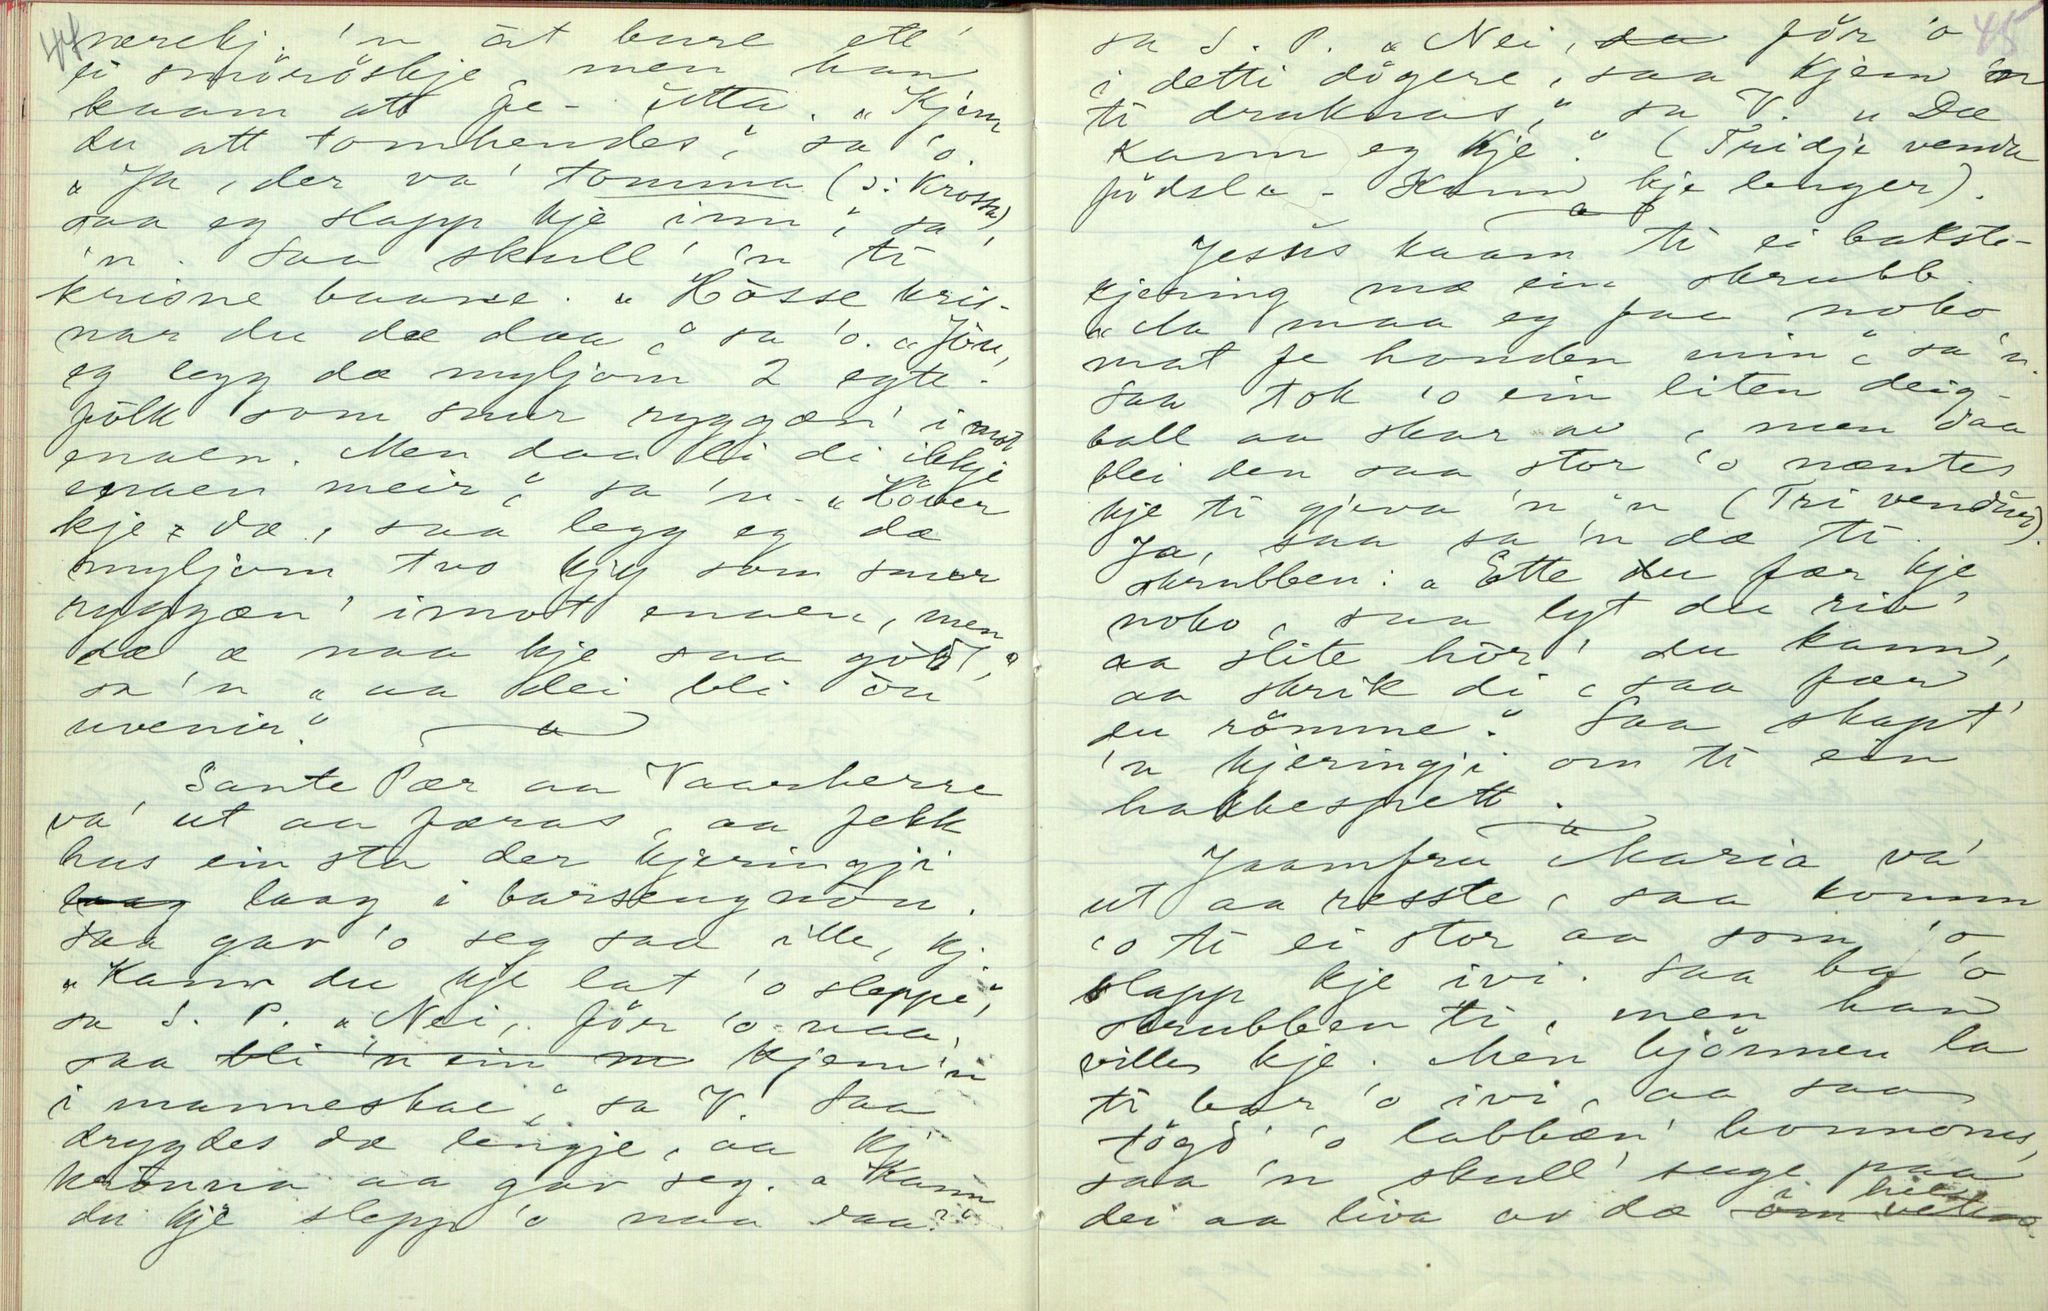 44
nærekj. 'n åt bure ette
ei smörösktje, men han
kaam att fe- utta. „Kjem
du att tomhendes," sa 'o.
„Ja, der va' tomma (ɔ: Krossa)
saa eg slapp kje inn," sa
'n. Saa skull' 'n ti
krisne baane. „Hösse kris-
nar du dæ daa," sa 'o. „Jöu,
eg legg dæ myljom 2 egte-
fölk som snur ryggæn' imot
enaen. Men daa li di ikkje
enaen meir," sa 'n. „Höver
kje dæ, saa legg eg dæ
myljom tvo kjy som snur
ryggæn' imot enaen, men
dæ æ naa kje saa godt,"
sa 'n „aa dei bli ou
uvenir."
Sante Pær aa Vaarherre
va' ut aa færas, aa fekk
hus ein sta der kjeringji
laag laag i barsengnön.
Saa gav 'o seg saa ille, kj.
„Kann du kje lat 'o sleppe",
sa S. P. „Nei, för 'o naa,
saa bli 'n ein m kjem 'n
i manneskae", sa V. Saa
drygdes dæ lengje, aa kj
krönna aa gav seg. „Kann
du kje slepp 'o naa daa?"
45
sa S. P. „Nei, da för 'o
i detti dögere, saa kjem 'n
ti druknas," sa V. „Dæ
kann eg kje." (Tridje venda
födsla - Kann kje lenger).
Jesus kaam ti ei bakste-
kjering mæ ein skrubb.
„Da maa eg faa noko
mat fe honden min", sa 'n.
Saa tok 'o ein liten deig-
ball aa skar av, men daa
blei den saa stor 'o næntes
kje ti gjeva 'n 'n (Tri vendur).
Ja, saa sa 'n dæ ti
skrubben: „Ette du fær kje
noko, saa lyt du riv'
aa slite hör' du kann,
aa skrik di, saa fær
du römme." Saa skapt'
'n kjeringji om ti ein
hakkespett.
Jaamfru Maria va'
ut aa resste, saa komm
'o ti ei stor aa som 'o
slapp kje ivi. Saa ba 'o
skrubben ti, men han
villes kje. Men björnen la
ti bar 'o ivi, aa saa
tögd' 'o labbæn' honnoms,
saa 'n skull' suge paa
dei aa liva av dæ i hi
om vet